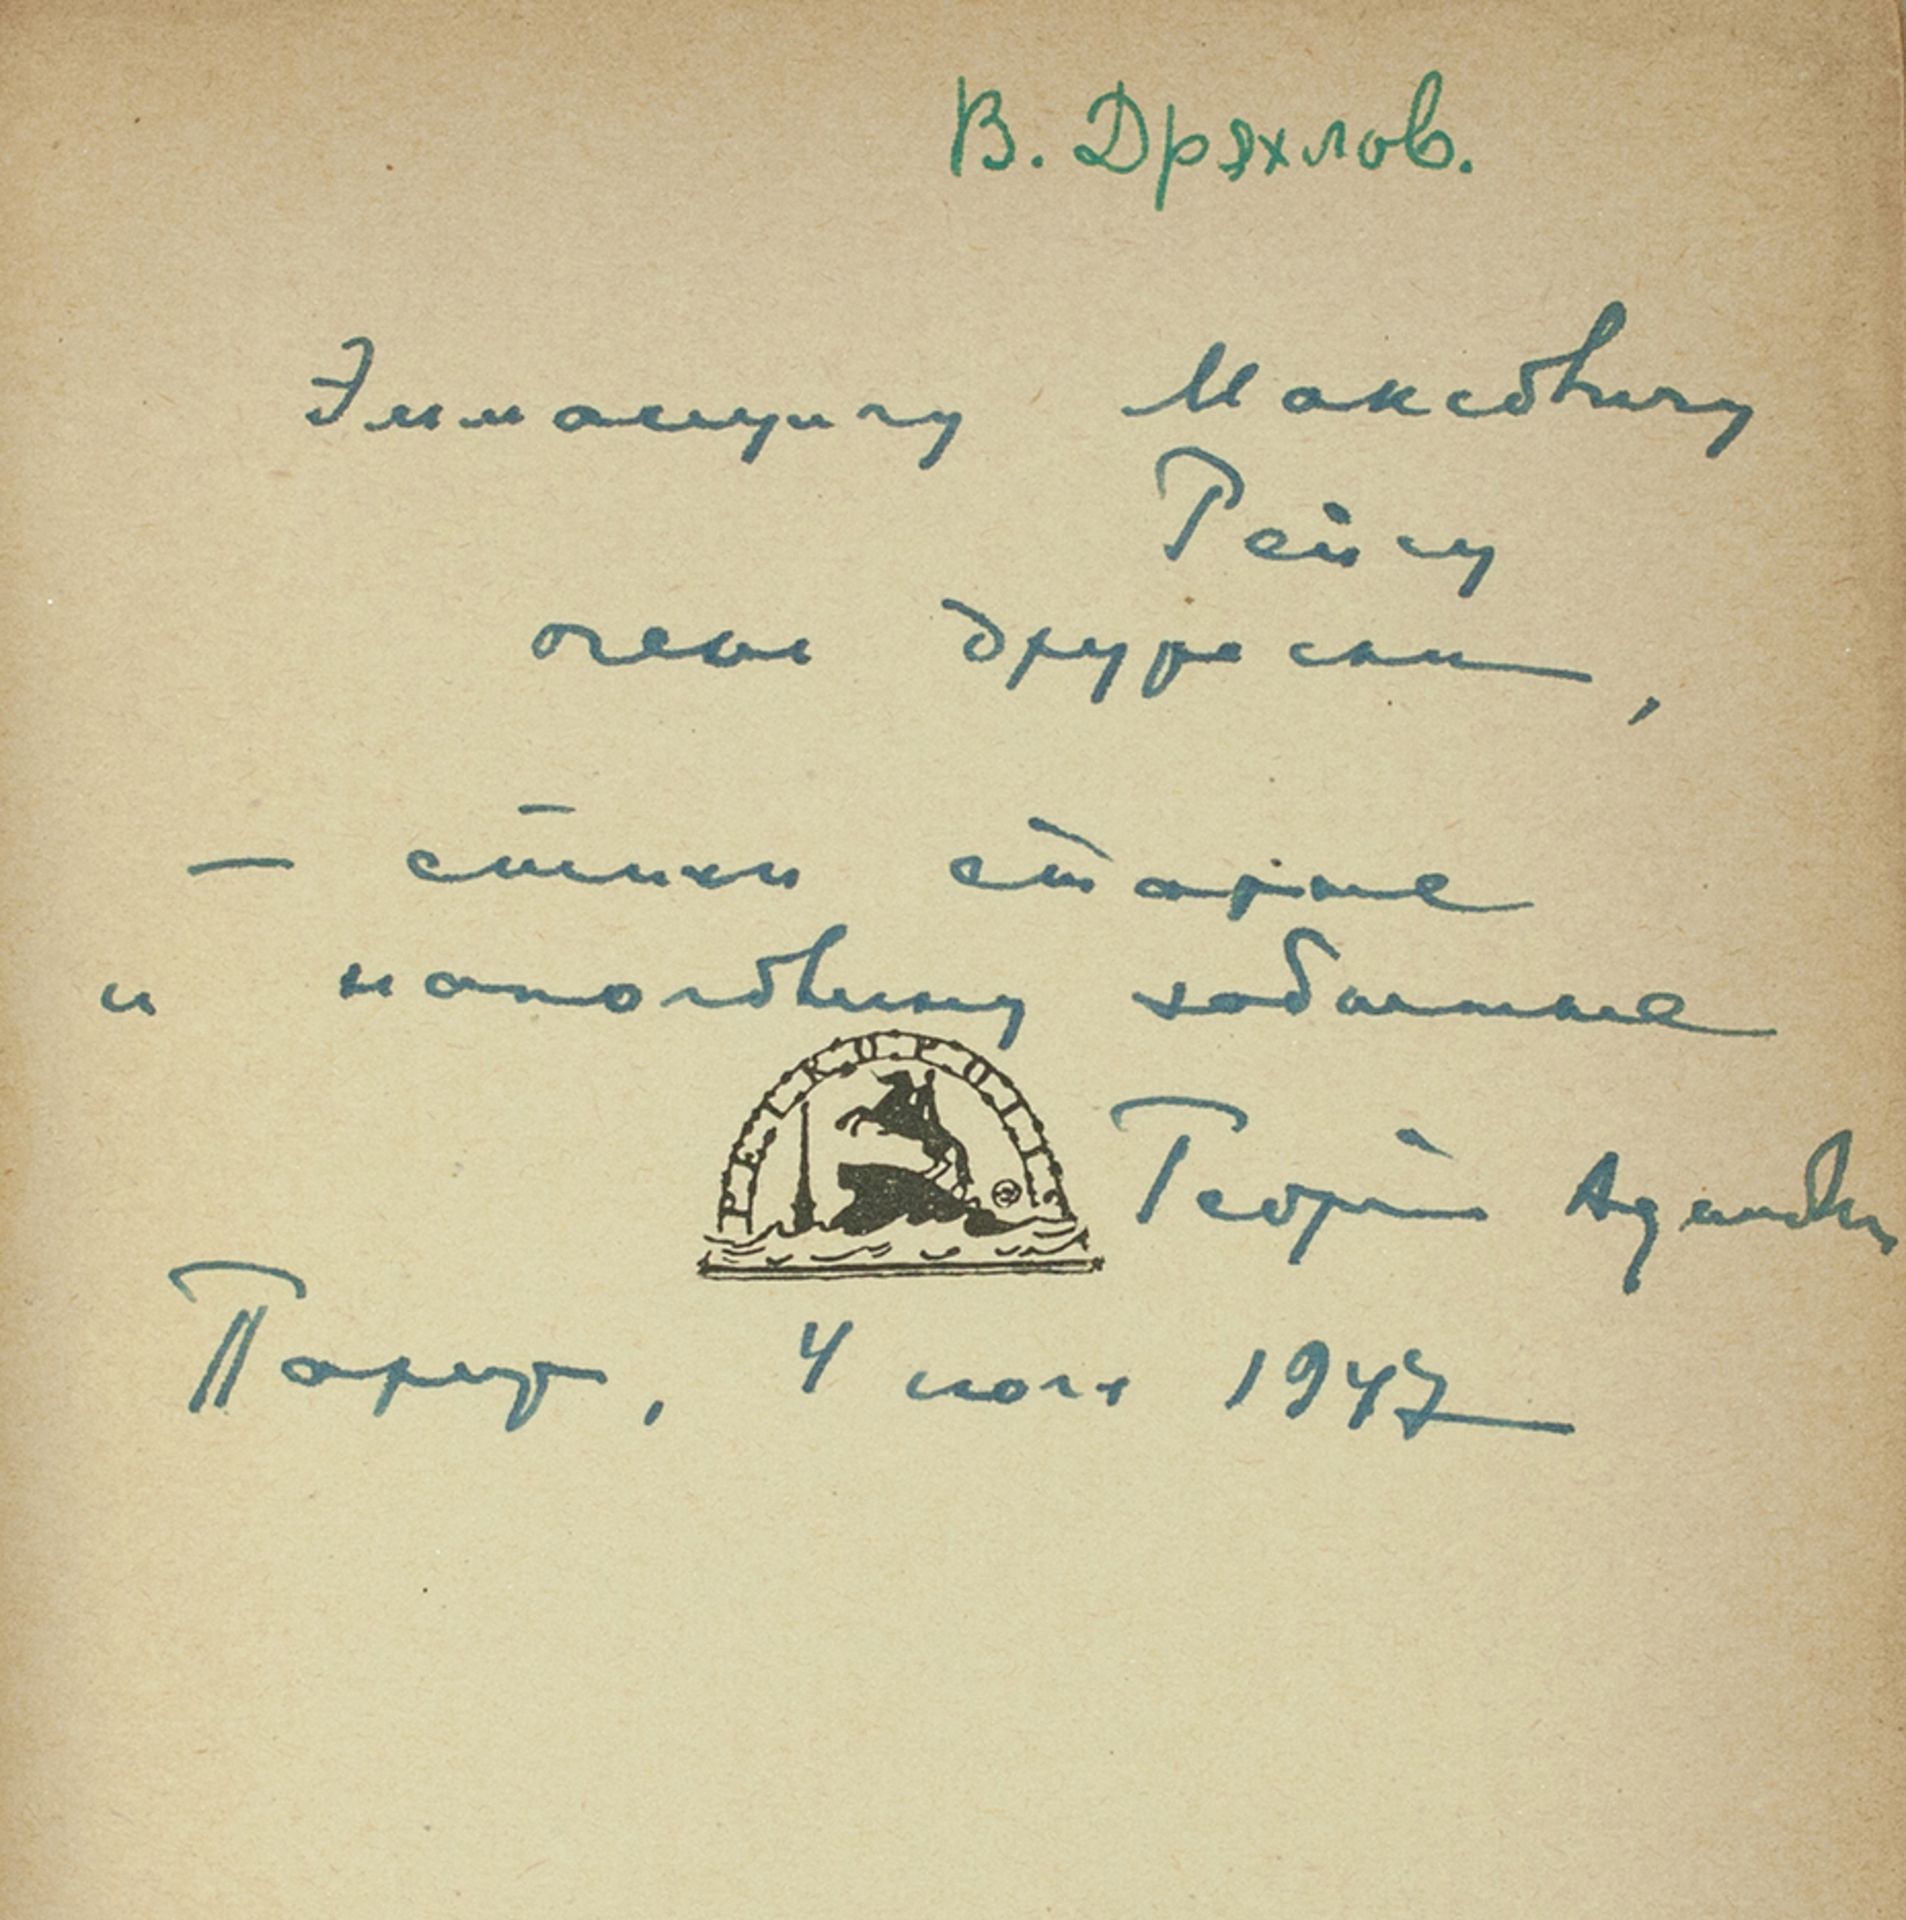 В. Дряхлов.
Эммануилу Максовичу
Рейсу
очень дружески,
— стихи старые
и наполовину забытые
PETROPOLIS
Георгий Адамович
Париж, 4 июля 1947